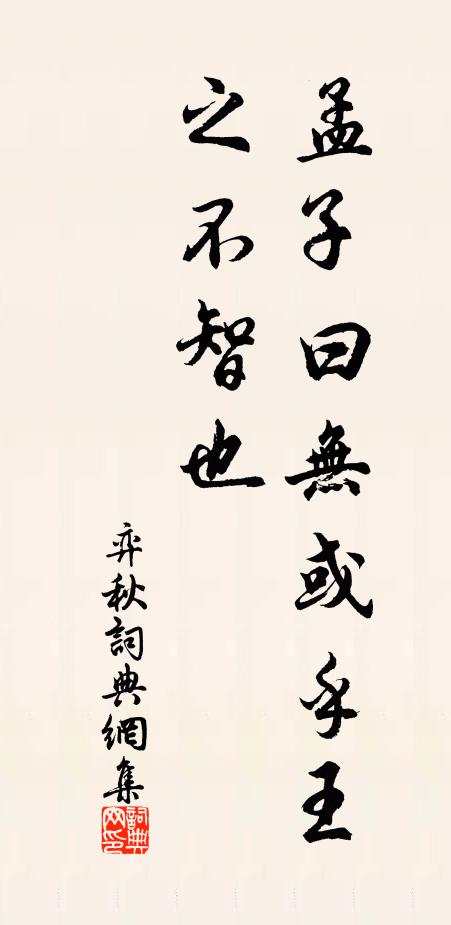 孟子曰無或乎王
之不智也
弈秋詞典網集
詞典网印